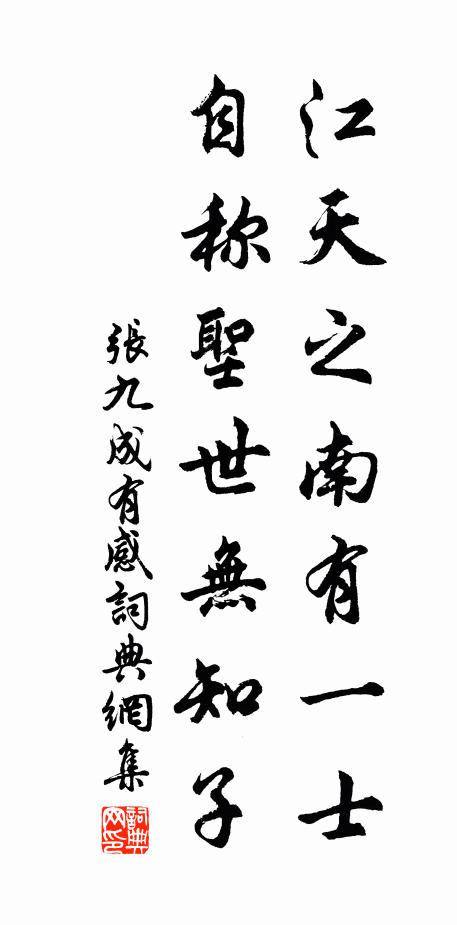 江天之南有一士
自称聖世無知子
張九成有感詞典網集
詞典网印